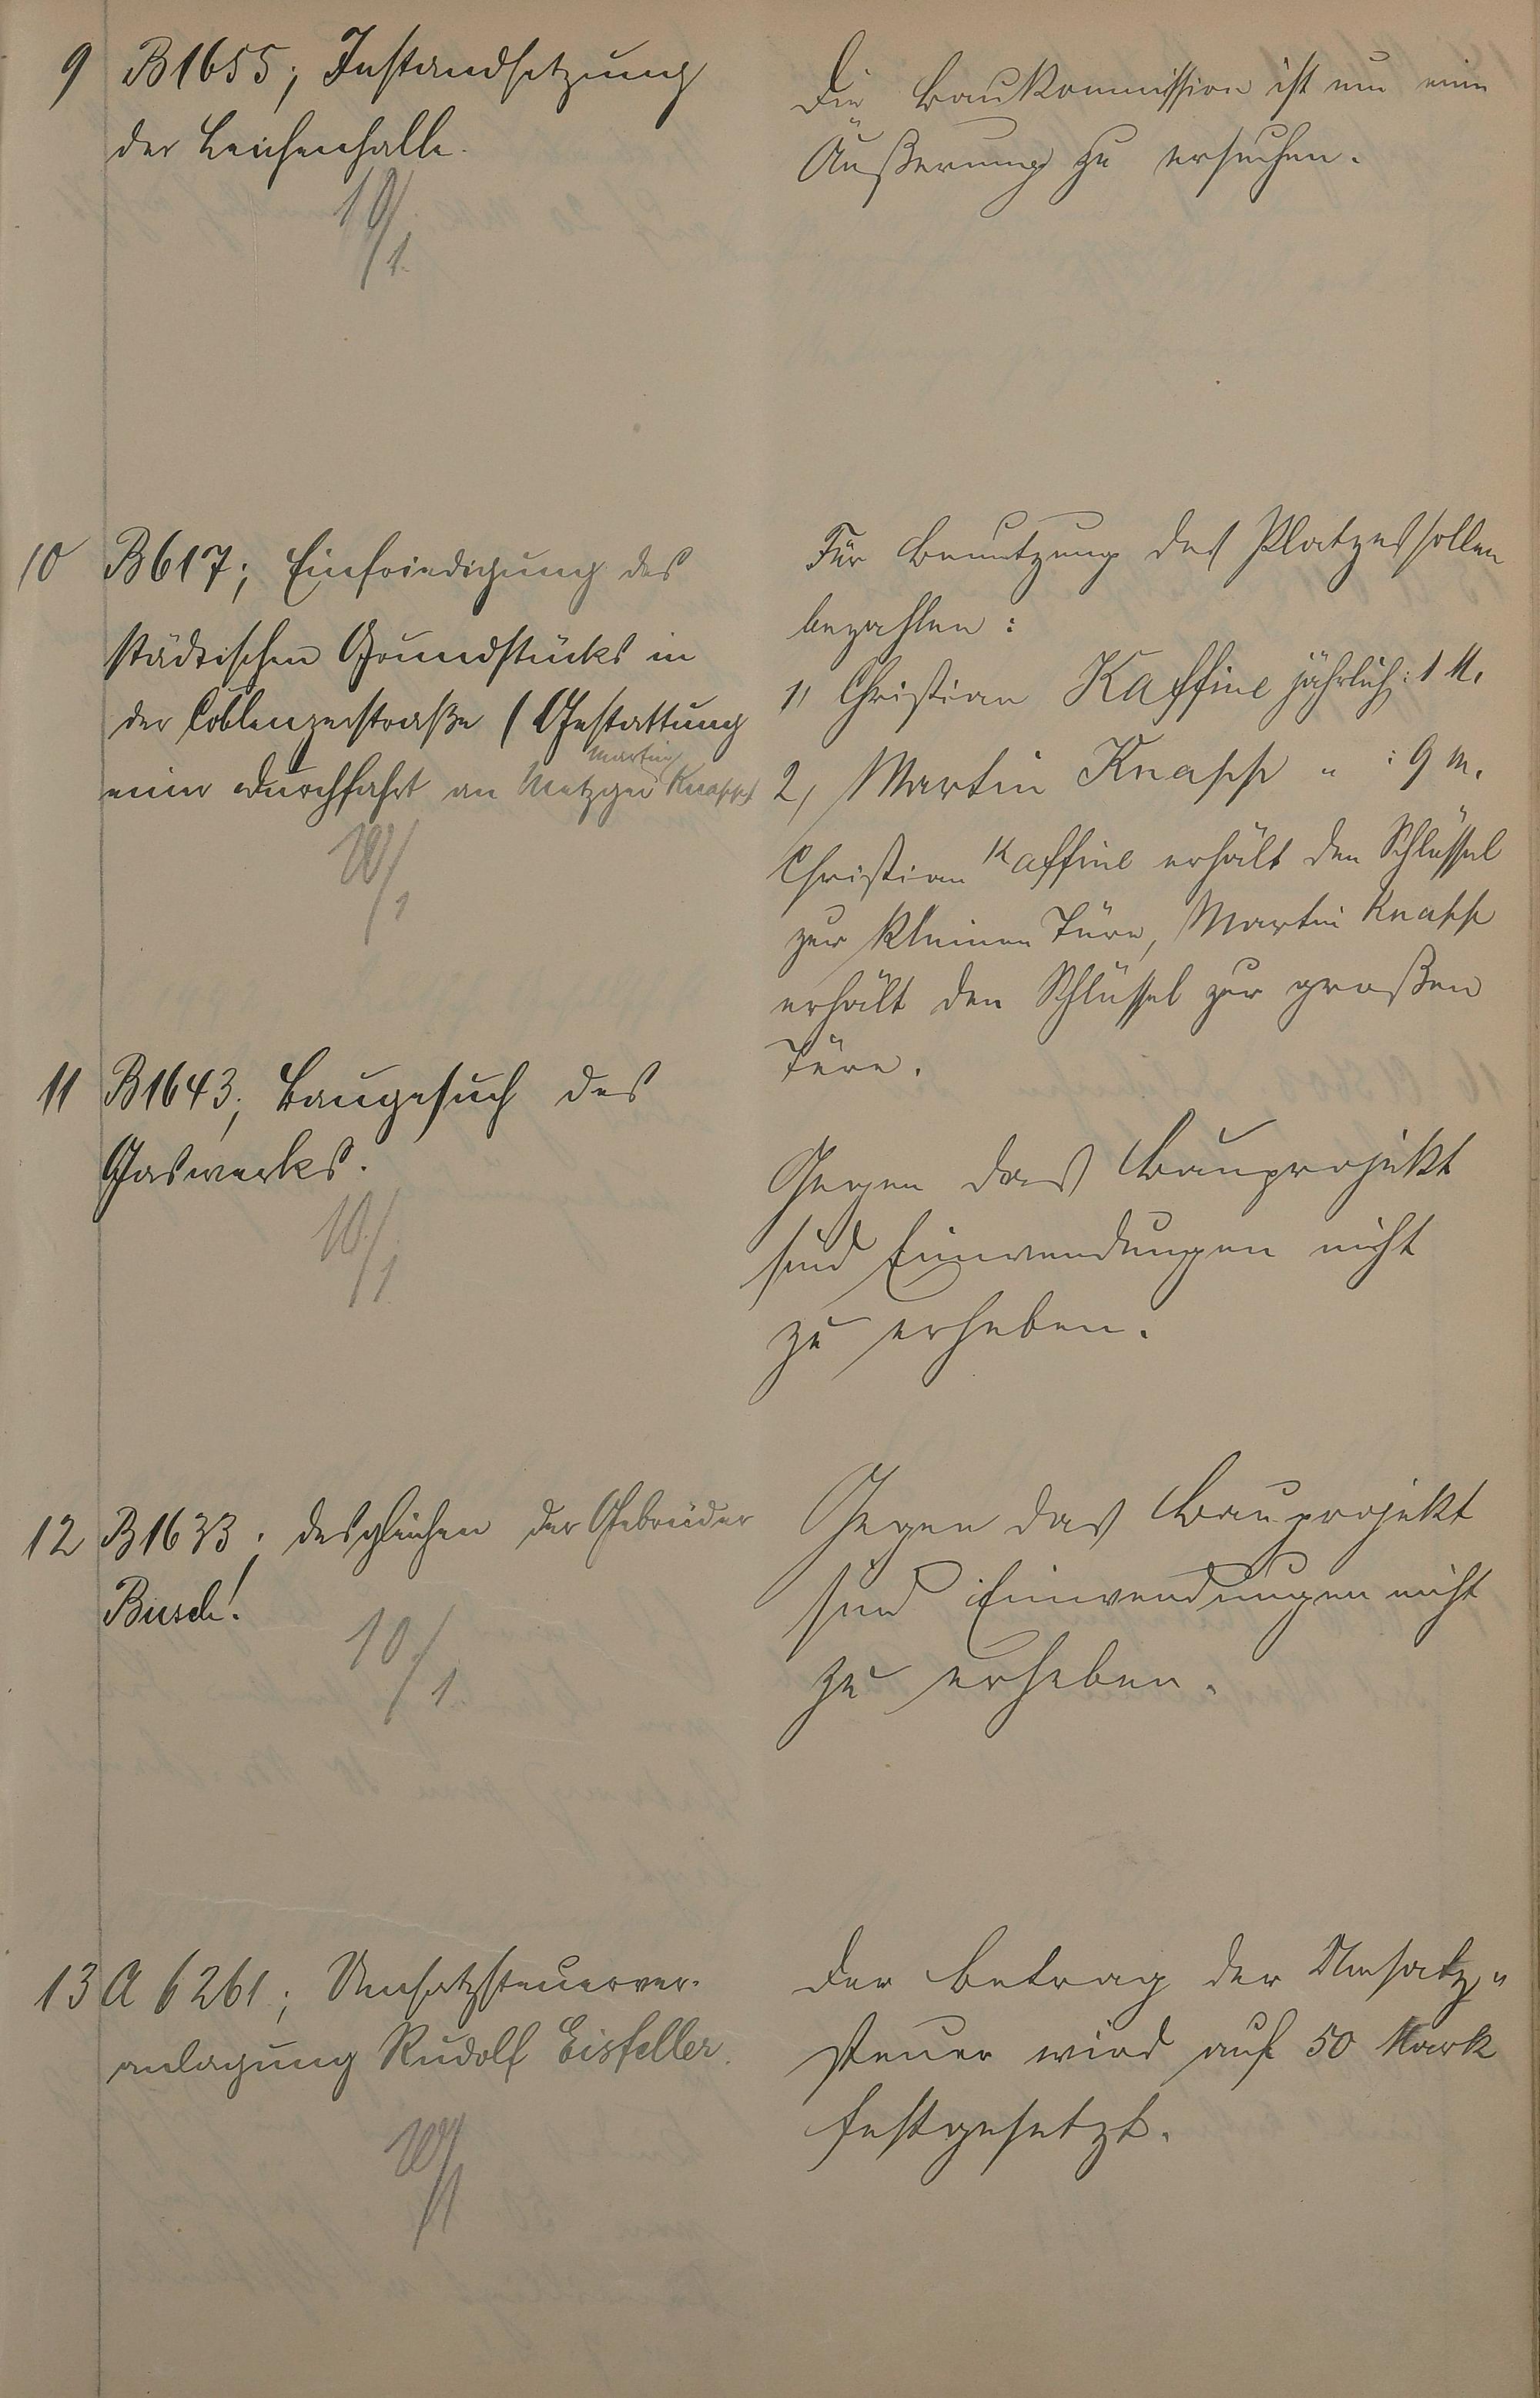 9 B1655; Instandsetzung
der Leichenhalle.
10/1.
Die Baukommission ist um eine
Äußerung zu ersuchen.
10 B617; Einfriedigung des
städtischen Grundstücks in
der Coblenzerstraße (Gestattung
einer Durchfahrt an Metzger Martin Knapp)
10/1
Für Benutzung des Platzes sollen
bezahlen:
1, Christian Kaffine jährlich: 1 M.
2, Martin Knapp " : 9 M.
Christian Kaffine erhält den Schlüssel
zur kleinen Türe, Martin Knapp
erhält den Schlüssel zur großen
Türe.
11 B1643; Baugesuch des
Gaswerks.
10/1
Gegen das Bauprojekt
sind Einwendungen nicht
zu erheben.
12 B1633; desgleichen der Gebrüder
Busch!
10/1.
Gegen das Bauprojekt
sind Einwendungen nicht
zu erheben.
13 A 6261; Umsatzsteuerver-
anlagung Rudolf Eisfeller.
10/1
Der Betrag der Umsatz-
steuer wird auf 50 Mark
festgesetzt.